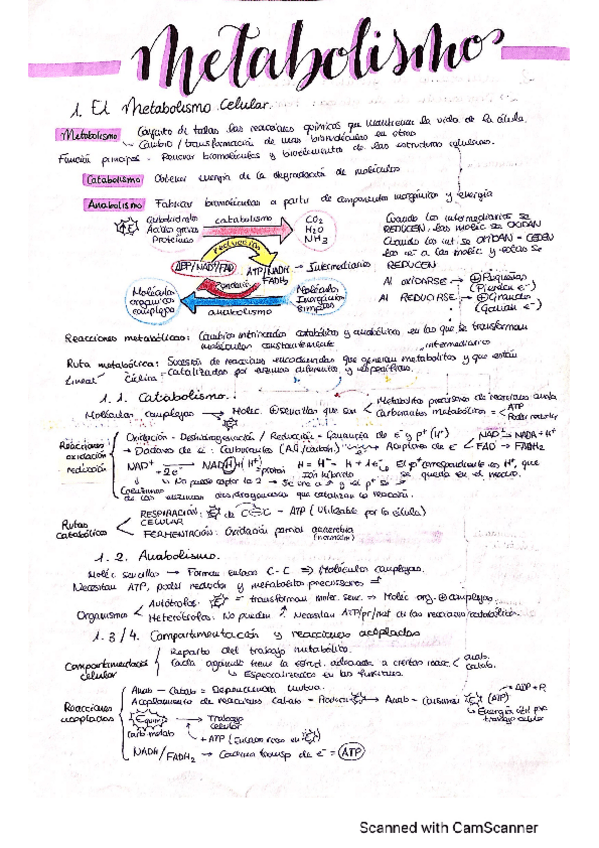 Metabolismo
1. El Metabolismo Celular.
Metabolismo Conjunto de todas las reacciones químicas que mantienen la vida de la célula.
Cambio / transformación de unas biomoléculas en otras
Función principal - Renovar biomoléculas y bioelementos de las estructuras celulares.
Catabolismo Obtener energía de la degradación de moléculas
Anabolismo Fabricar biomoléculas a partir de componentes inorgánicos y energía
Carbohidratos
Ácidos grasos
Proteínas
catabolismo
CO2
H2O
NH3
Reducción
ADP/NAD+/FAD
ATP/NADH
FADH2
→ Intermediarios
Oxidación
Moléculas orgánicas complejas
Moléculas Inorgánicas simples
anabolismo
Cuando los intermediarios se
REDUCEN, las moléc se OXIDAN
Cuando los int. se OXIDAN = CEDEN
los e- a las moléc y estas se
REDUCEN
Al OXIDARSE → ⊕ Pequeñas
(Pierden e-)
Al REDUCIRSE → ⊕ Grandes
(Ganan e-)
Reacciones metabólicas: Cambios intrincados catabólicos y anabólicos en las que se transforman
moléculas constantemente
intermediarios
Ruta metabólica: Sucesión de reacciones encadenadas que generan metabolitos y que están
Lineal Cíclica catalizadas por enzimas diferentes y específicas.
1.1. Catabolismo.
Moléculas complejas → Moléc. ⊕ sencillas que son < Metabolitos precursores de reacciones anab.
Carbonatos metabólicos = < ATP
Poder reductor
Reacciones oxidación reducción
Oxidación - Deshidrogenación / Reducción = Ganancia de e- y p+ (H+)
→ Dadores de e-: Carburantes (A.G/carboh.) → Aceptores de e- < NAD → NADH + H+
FAD → FADH2
NAD+ -2e- → NADH (H+)
H = H- H + 1e-
Ión híbrido
El p+ correspondiente es H+, que
se queda en el medio.
No puede captar los 2 → Se une a y el p+ se
de las enzimas deshidrogenasas que catalizan la reacción.
Rutas catabólicas
RESPIRACIÓN: de C-C - ATP (Utilizable por la célula)
CELULAR
FERMENTACIÓN: Oxidación parcial
1.2. Anabolismo.
Moléc sencillas → Forman enlaces C-C ⇒ Moléculas complejas.
Necesitan ATP, poder reductor y metabolitos precursores
Organismos
Autótrofos: = transforman → Moléc org. ⊕ complejas.
Heterótrofos: No pueden ↑ Necesitan ATP/pr/met de las reacciones catabólicas.
1.3/4. Compartimentación y reacciones acopladas
Compartimentación celular
Reparto del trabajo metabólico.
Cada orgánulo tiene la estruct. adecuada a ciertas reacc. < anab.
catab.
↳ Especializados en las funciones.
Reacciones acopladas
Anab - Catab = Dependencia mutua.
Acoplamiento de reacciones Catab - Producir → Anab - Consumir (ATP)
→ ADP + P.
↳ Energía útil para
trabajo celular
→ Trabajo celular
carb metab
NADH/FADH2 → Cadena transp de e- = ATP
Scanned with CamScanner